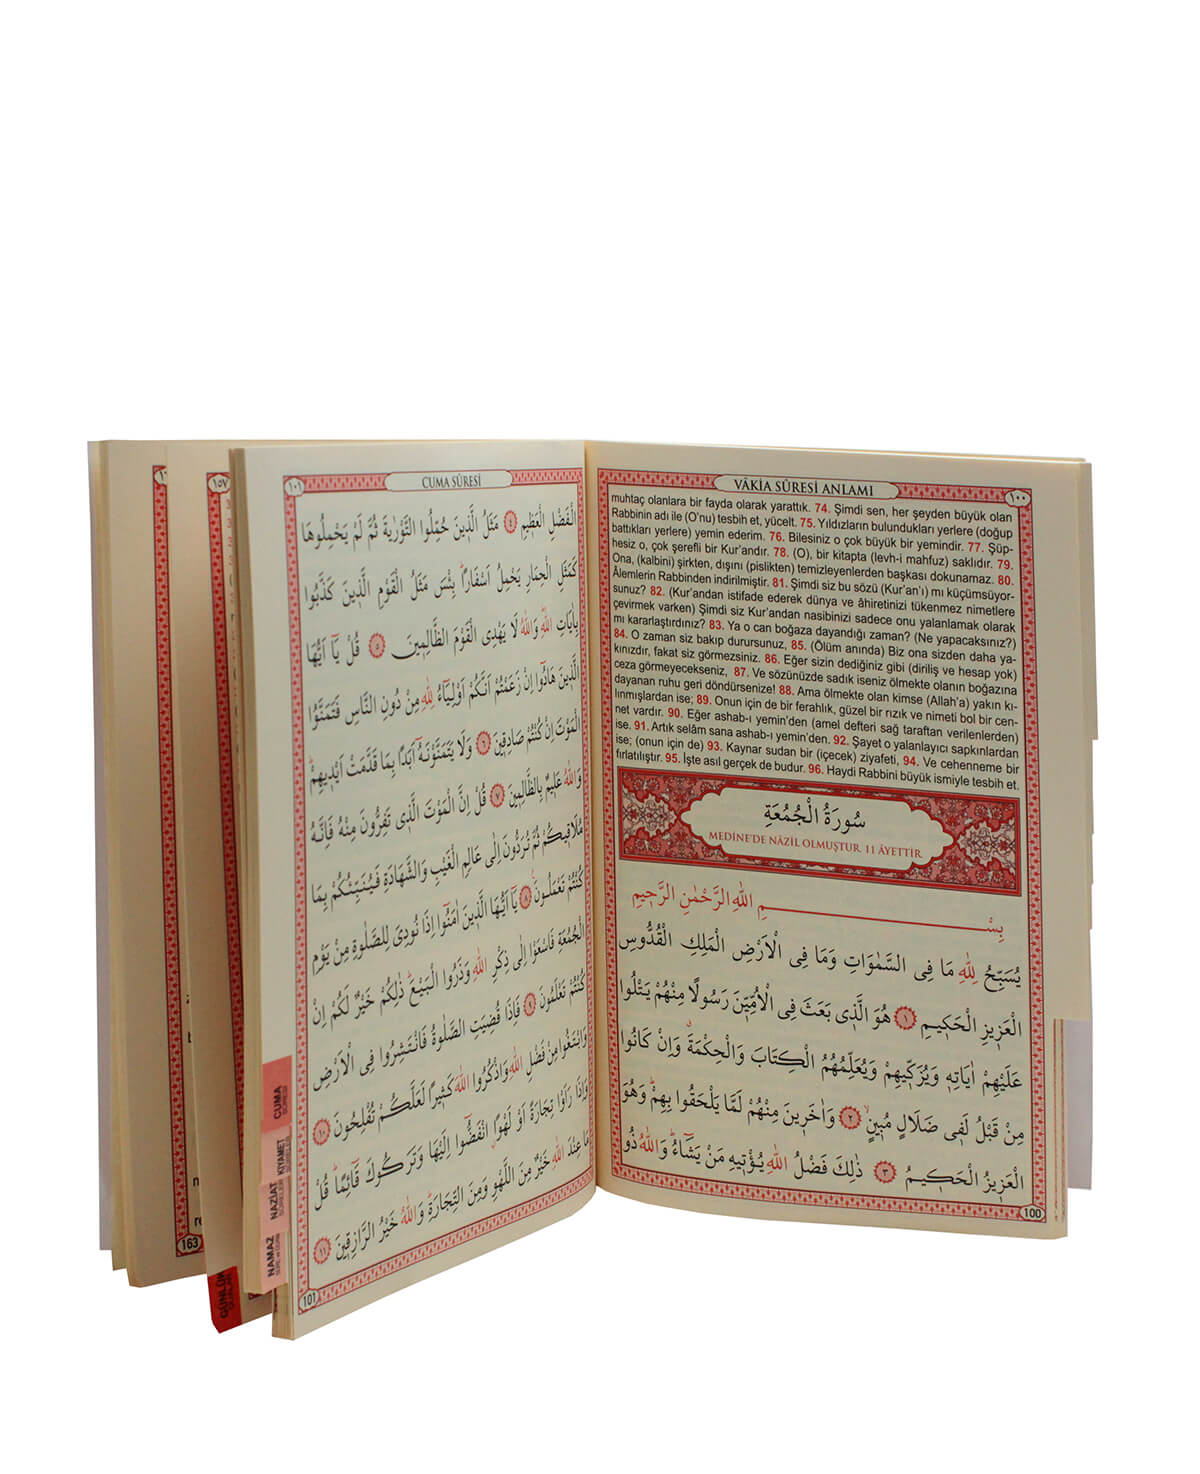 ١٠٠
VÂKİA SÛRESİ ANLAMI
muhtaç olanlara bir fayda olarak yarattık. 74. Şimdi sen, her şeyden büyük olan
Rabbinin adı ile (O’nu) tesbih et, yücelt. 75. Yıldızların bulundukları yerlere (doğup
battıkları yerlere) yemin ederim. 76. Bilesiniz o çok büyük bir yemindir. 77. Şüp-
hesiz o, çok şerefli bir Kur’andır. 78. (O), bir kitapta (levh-i mahfuz) saklıdır. 79.
Ona, (kalbini) şirkten, dışını (pislikten) temizleyenlerden başkası dokunamaz. 80.
Âlemlerin Rabbinden indirilmiştir. 81. Şimdi siz bu sözü (Kur’an’ı) mı küçümsüyor-
sunuz? 82. (Kur’andan istifade ederek dünya ve âhiretinizi tükenmez nimetlere
çevirmek varken) Şimdi siz Kur’andan nasibinizi sadece onu yalanlamak olarak
mı kararlaştırdınız? 83. Ya o can boğaza dayandığı zaman? (Ne yapacaksınız?)
84. O zaman siz bakıp durursunuz, 85. (Ölüm anında) Biz ona sizden daha ya-
kınızdır, fakat siz görmezsiniz. 86. Eğer sizin dediğiniz gibi (diriliş ve hesap yok)
ceza görmeyecekseniz, 87. Ve sözünüzde sadık iseniz ölmekte olanın boğazına
dayanan ruhu geri döndürsenize! 88. Ama ölmekte olan kimse (Allah’a) yakın kı-
lınmışlardan ise; 89. Onun için de bir ferahlık, güzel bir rızık ve nimeti bol bir cen-
net vardır. 90. Eğer ashab-ı yemin’den (amel defteri sağ taraftan verilenlerden)
ise. 91. Artık selâm sana ashab-ı yemin’den. 92. Şayet o yalanlayıcı sapkınlardan
ise; (onun için de) 93. Kaynar sudan bir (içecek) ziyafeti, 94. Ve cehenneme bir
fırlatılıştır. 95. İşte asıl gerçek de budur. 96. Haydi Rabbini büyük ismiyle tesbih et.
سُورَةُ الْجُمُعَةِ
MEDİNE’DE NÂZİL OLMUŞTUR. 11 ÂYETTİR.
بِسْمِ اللّٰهِ الرَّحْمٰنِ الرَّحٖيمِ
يُسَبِّحُ لِلّٰهِ مَا فِى السَّمٰوَاتِ وَمَا فِى الْاَرْضِ الْمَلِكِ الْقُدُّوسِ
الْعَزٖيزِ الْحَكٖيمِ ﴿١﴾ هُوَ الَّذٖى بَعَثَ فِى الْاُمِّيّٖنَ رَسُولًا مِنْهُمْ يَتْلُوا
عَلَيْهِمْ اٰيَاتِهٖ وَيُزَكّٖيهِمْ وَيُعَلِّمُهُمُ الْكِتَابَ وَالْحِكْمَةَۗ وَاِنْ كَانُوا
مِنْ قَبْلُ لَفٖى ضَلَالٍ مُبٖينٍۙ ﴿٢﴾ وَاٰخَرٖينَ مِنْهُمْ لَمَّا يَلْحَقُوا بِهِمْۜ وَهُوَ
الْعَزٖيزُ الْحَكٖيمُ ﴿٣﴾ ذٰلِكَ فَضْلُ اللّٰهِ يُؤْتٖيهِ مَنْ يَشَٓاءُۜ وَاللّٰهُ ذُو
100
١٠١
CUMA SÛRESİ
الْفَضْلِ الْعَظٖيمِ ﴿٤﴾ مَثَلُ الَّذٖينَ حُمِّلُوا التَّوْرٰيةَ ثُمَّ لَمْ يَحْمِلُوهَا
كَمَثَلِ الْحِمَارِ يَحْمِلُ اَسْفَارًاۜ بِئْسَ مَثَلُ الْقَوْمِ الَّذٖينَ كَذَّبُوا
بِاٰيَاتِ اللّٰهِۜ وَاللّٰهُ لَا يَهْدِى الْقَوْمَ الظَّالِمٖينَ ﴿٥﴾ قُلْ يَٓا اَيُّهَا
الَّذٖينَ هَادُٓوا اِنْ زَعَمْتُمْ اَنَّكُمْ اَوْلِيَٓاءُ لِلّٰهِ مِنْ دُونِ النَّاسِ فَتَمَنَّوُا
الْمَوْتَ اِنْ كُنْتُمْ صَادِقٖينَ ﴿٦﴾ وَلَا يَتَمَنَّوْنَهُٓ اَبَدًا بِمَا قَدَّمَتْ اَيْدٖيهِمْۜ
وَاللّٰهُ عَلٖيمٌ بِالظَّالِمٖينَ ﴿٧﴾ قُلْ اِنَّ الْمَوْتَ الَّذٖى تَفِرُّونَ مِنْهُ فَاِنَّهُ
مُلَاقٖيكُمْ ثُمَّ تُرَدُّونَ اِلٰى عَالِمِ الْغَيْبِ وَالشَّهَادَةِ فَيُنَبِّئُكُمْ بِمَا
كُنْتُمْ تَعْمَلُونَ ﴿٨﴾ يَٓا اَيُّهَا الَّذٖينَ اٰمَنُٓوا اِذَا نُودِىَ لِلصَّلٰوةِ مِنْ يَوْمِ
الْجُمُعَةِ فَاسْعَوْا اِلٰى ذِكْرِ اللّٰهِ وَذَرُوا الْبَيْعَۜ ذٰلِكُمْ خَيْرٌ لَكُمْ اِنْ
كُنْتُمْ تَعْلَمُونَ ﴿٩﴾ فَاِذَا قُضِيَتِ الصَّلٰوةُ فَانْتَشِرُوا فِى الْاَرْضِ
وَابْتَغُوا مِنْ فَضْلِ اللّٰهِ وَاذْكُرُوا اللّٰهَ كَثٖيرًا لَعَلَّكُمْ تُفْلِحُونَ ﴿١٠﴾
وَاِذَا رَاَوْا تِجَارَةً اَوْ لَهْوًاۨ انْفَضُّٓوا اِلَيْهَا وَتَرَكُوكَ قَٓائِمًاۜ قُلْ
مَا عِنْدَ اللّٰهِ خَيْرٌ مِنَ اللَّهْوِ وَمِنَ التِّجَارَةِۜ وَاللّٰهُ خَيْرُ الرَّازِقٖينَ ﴿١١﴾
101
CUMA
SÛRESİ
KIYAMET
NAZİAT
NAMAZ
GÜNLÜK
١٥٧
163